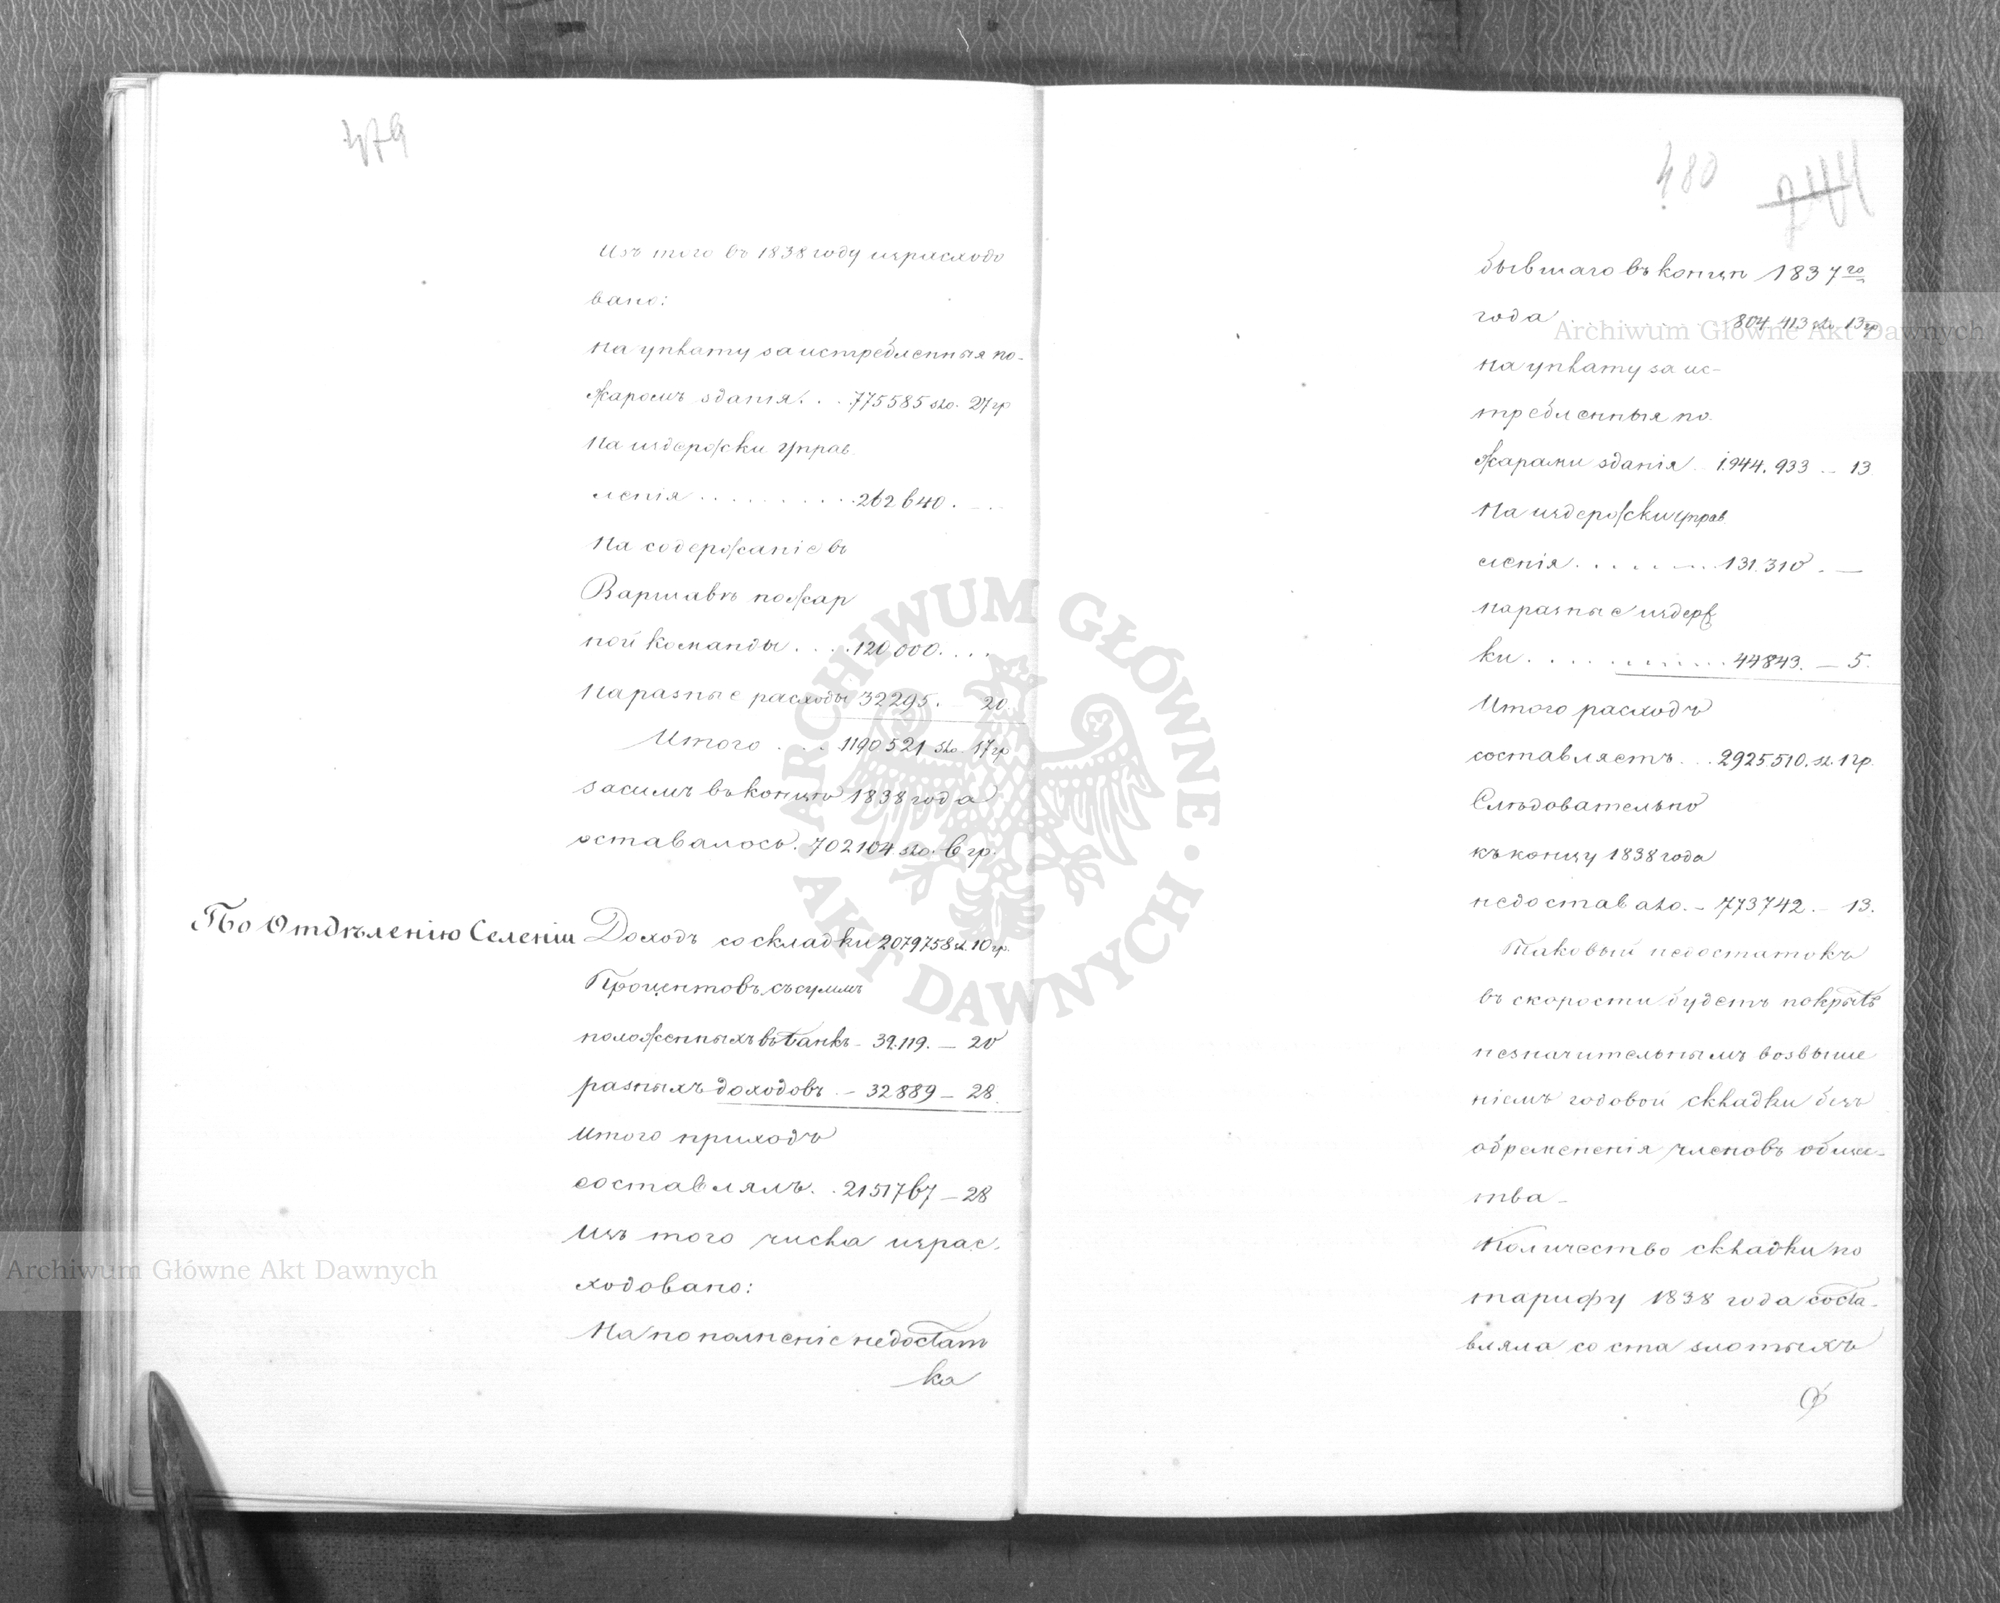 479
Изъ того въ 1838 году израсходо
вано:
На уплату за истребленныя по-
жаромъ зданія . . . 775585 зло. 27 гр
На издержки Управ
ленія . . . . . . . . . . 262640. —
На содержаніе въ
Варшавѣ пожар
ной команды . . . . 120,000. . . .
На разные расходы 32295. — 20.
Итого . . . 1190521 зло. 17 гр
засимъ въ концѣ 1838 года
оставалось. 702104 зло. 6 гр.
По Отдѣленію Селеній Доходъ со складки 2079758 зл. 10 гр.
Процентовъ съ суммъ
положенныхъ въ банкъ - 39.119. — 20
разныхъ доходовъ. — 32889 — 28.
Итого приходъ
составлялъ. . 2151767 — 28
Изъ того числа израс-
ходовано:
На пополненіе недостат
ка
480
244
бывшаго въ концѣ 1837 го
года 804 413 зло. 13 гр
На уплату за ис-
требленныя по
жарами зданія 1.944.933 — 13
На издержки Управ
ленія . . . . . . . . 131.310. —
На разные издерж
ки . . . . . . . . . . . 44843. — 5.
Итого расходъ
составляетъ . . . 2925510. зл. 1 гр.
Слѣдовательно
къ концу 1838 года
недоставало. - 773742. — 13.
Таковый недостатокъ
въ скорости будетъ покрытъ
незначительнымъ возвыше
ніемъ годовой складки безъ
обремененія членовъ общес-
тва —
Количество складки по
тарифу 1838 года соста-
вляла со ста злотыхъ
Archiwum Główne Akt Dawnych
Archiwum Główne Akt Dawnych
ARCHIWUM GŁÓWNE · AKT DAWNYCH ·